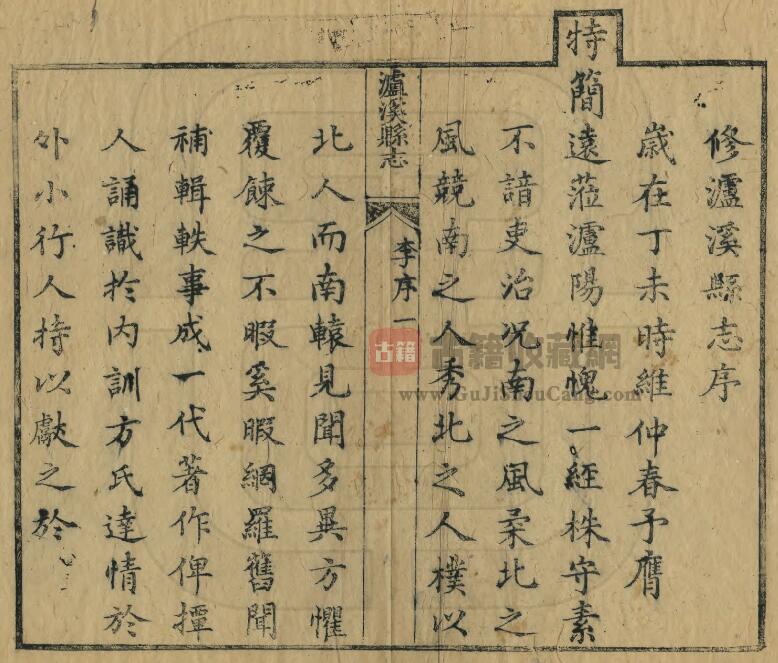 修瀘溪縣志序
歲在丁未時維仲春予膺
特簡遠蒞瀘陽惟愧一經株守素
不諳吏治况南之風柔北之
風競南之人秀北之人樸以
瀘溪縣志
李序一
北人而南轅見聞多異方懼
覆餗之不暇奚暇網羅舊聞
補輯軼事成一代著作俾擅
人誦識扵内訓方氏達情於
外小行人持以獻之於
古籍
古籍收藏網
www.GuJiShouCang.com